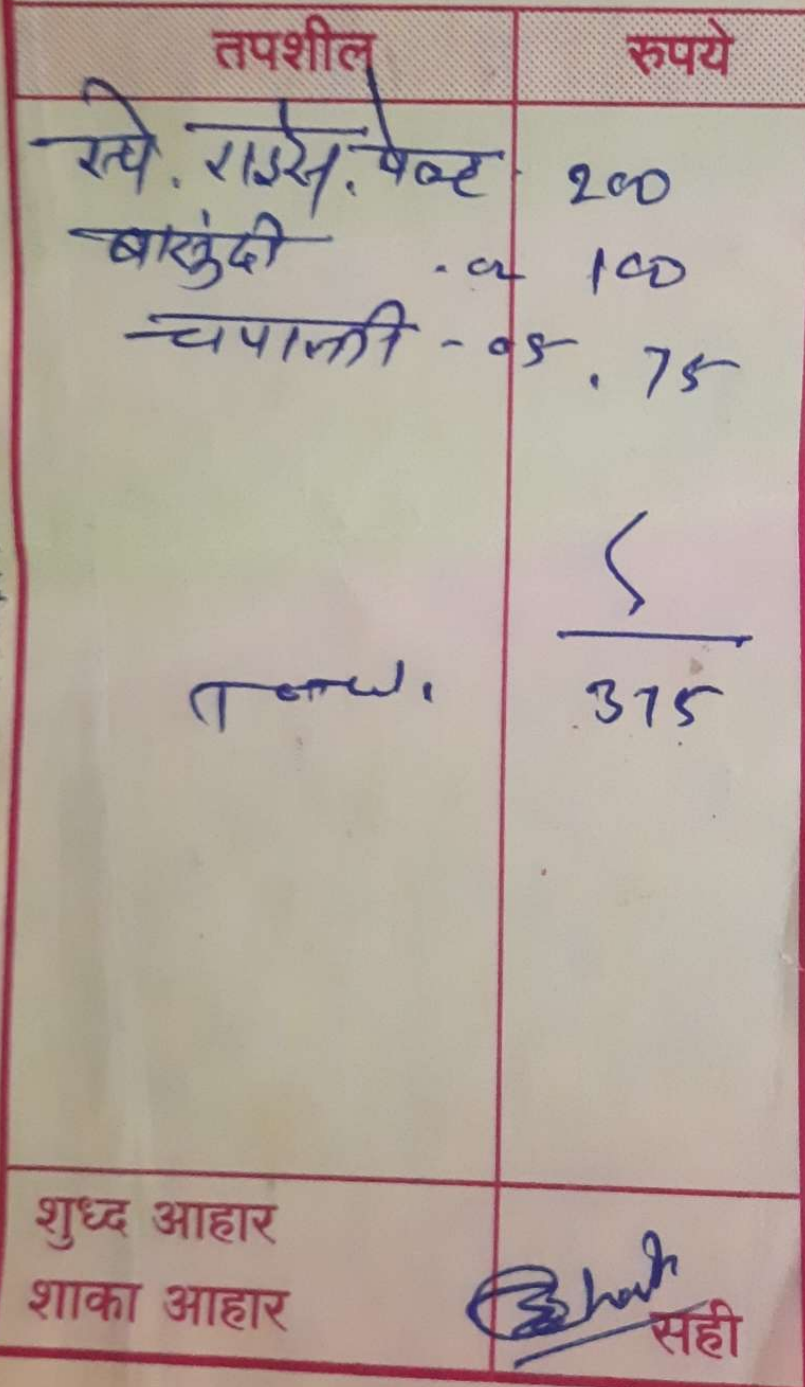 तपशील रुपये
स्पे. राईस. प्लेट 200
बासुंदी - 02 100
चपाती - 05. 75
Total. 375
शुध्द आहार
शाका आहार
सही